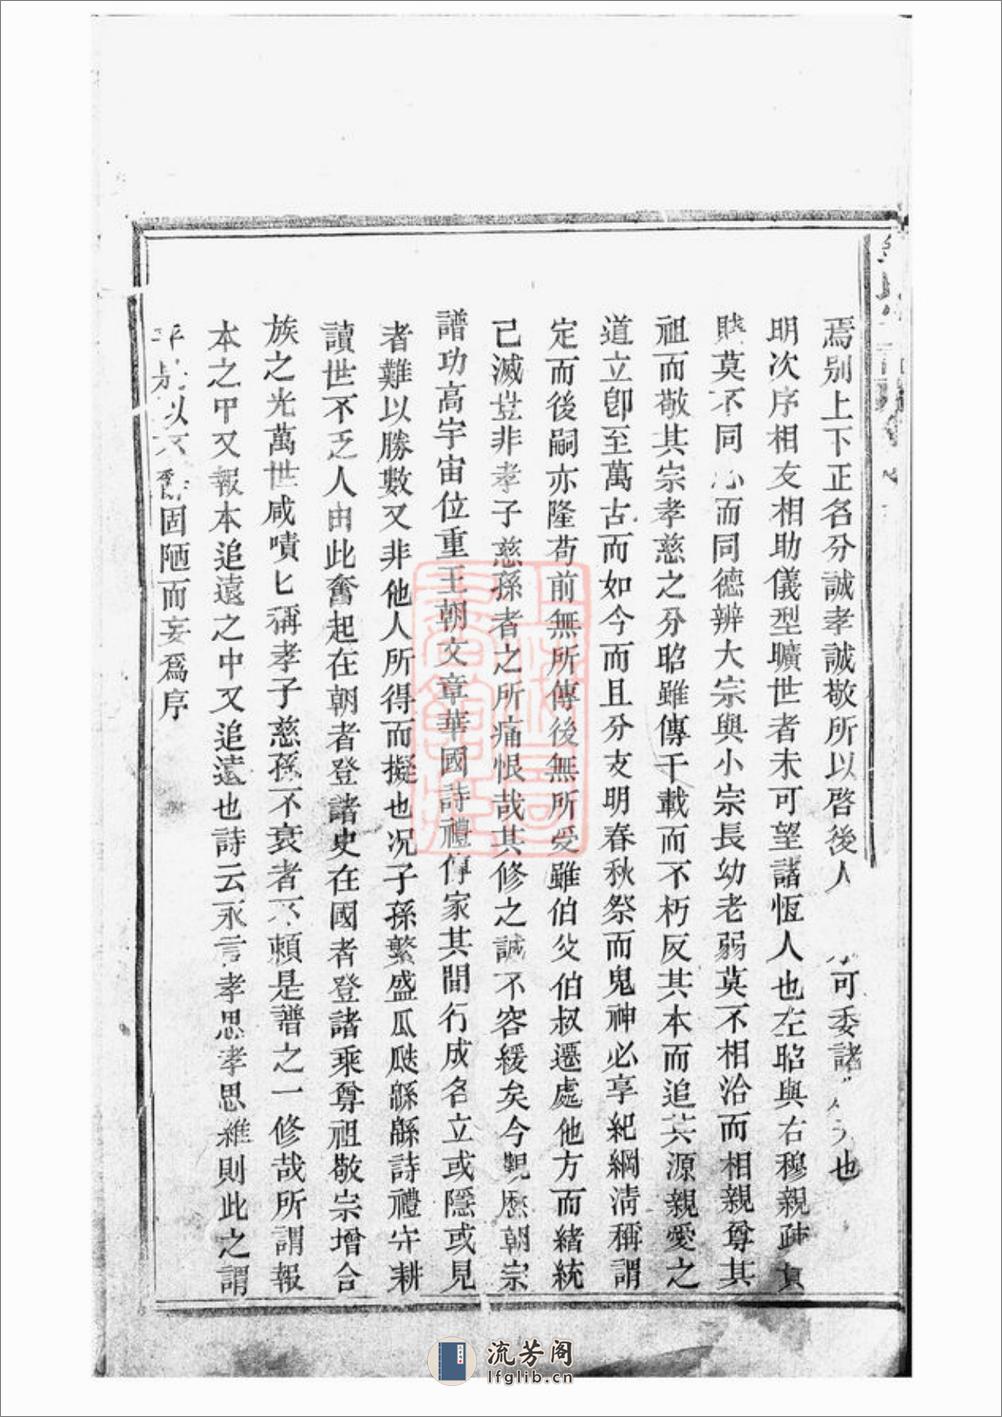 焉别上下正名分誠孝誠敬所以啓後人可委諸也
明次序相友相助儀型曠世者未可望諸恆人也左昭與右穆親疎
賤莫不同而同德辨大宗與小宗長幼老弱莫不相洽而相親尊其
祖而敬其宗孝慈之分昭雖傳千載而不朽反其本而追其源親愛之
道立卽至萬古而如今而且分支明春秋祭而鬼神必享紀綱淸稱謂
定而後嗣亦隆苟前無所傳後無所受雖伯父伯叔遷處他方而緒統
已滅豈非孝子慈孫者之所痛恨哉其修之誠不容緩矣今覩歷朝宗
譜功高宇宙位重王朝文章華國詩禮傳家其間行成名立或隱或見
者難以勝數又非他人所得而擬也况子孫繁盛瓜瓞緜緜詩禮守耕
讀世不乏人由此奮起在朝者登諸史在國者登諸乘尊祖敬宗增合
族之光萬世咸嘖匕稱孝子慈孫不衰者不賴是譜之一修哉所謂報
本之中又報本追遠之中又追遠也詩云永言孝思孝思維則此之謂
乎是以不固陋而妄爲序
流芳阁
lfglib.cn